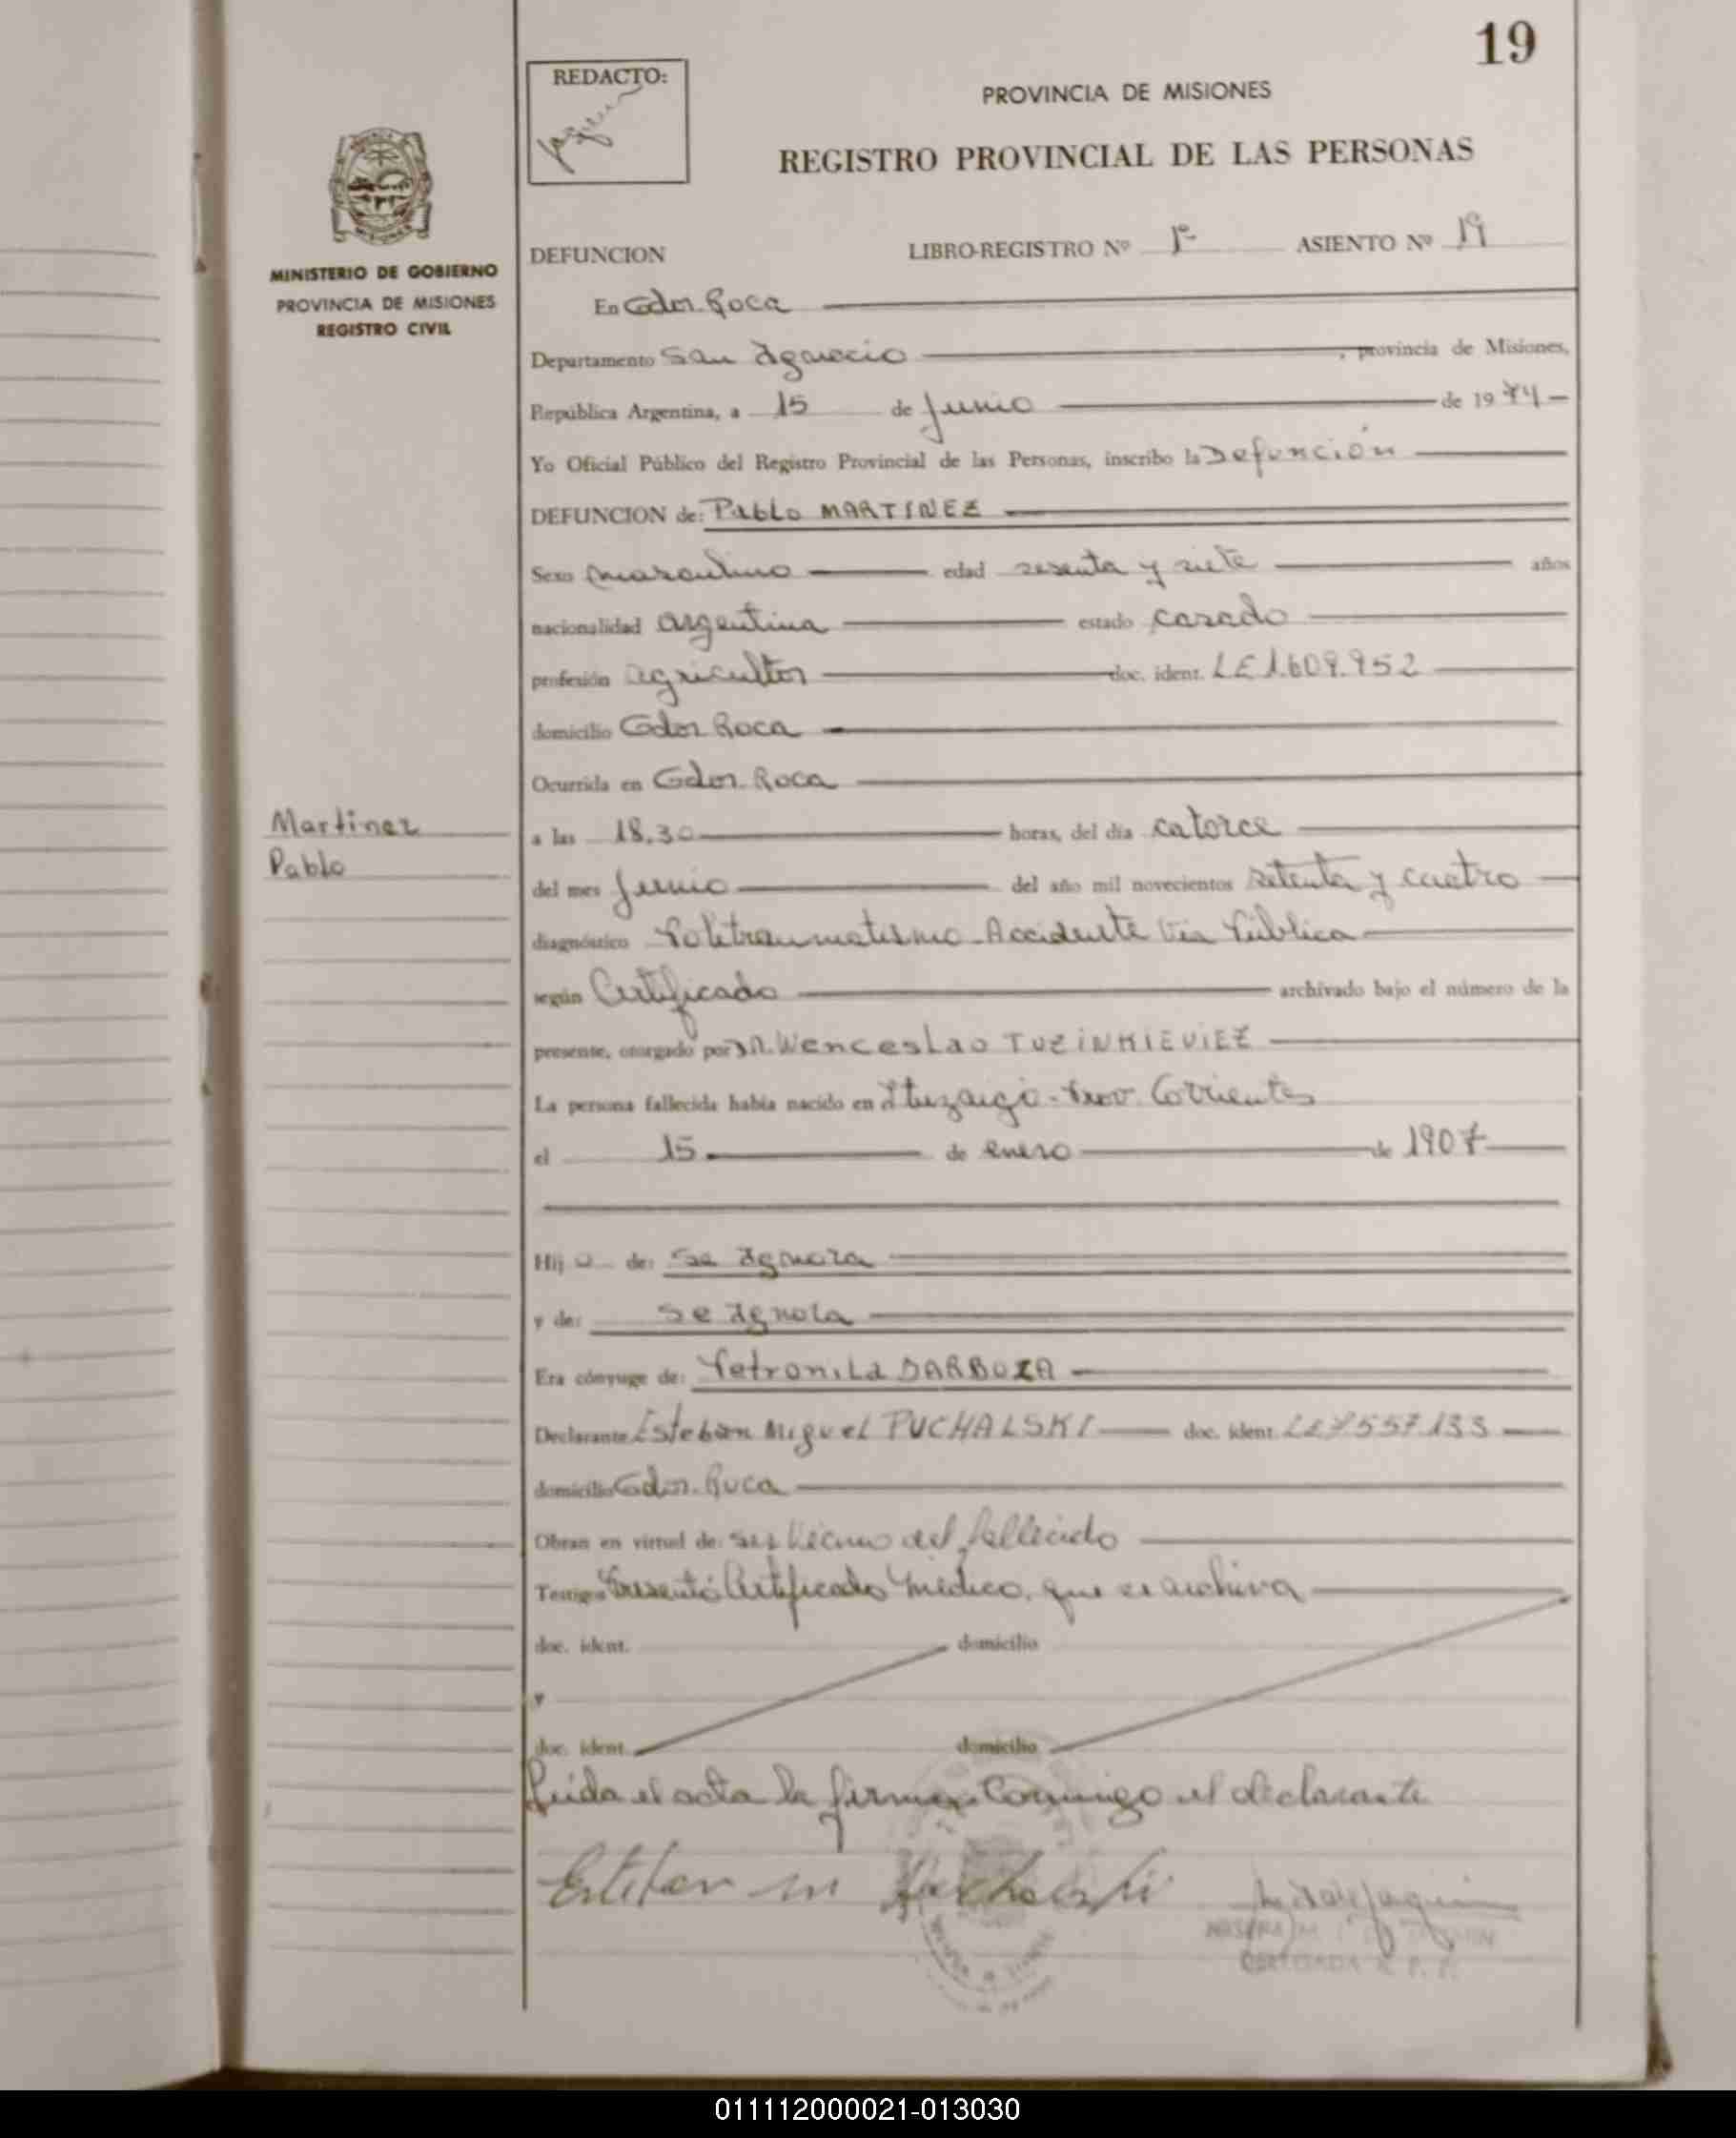 19
REDACTO:
PROVINCIA DE MISIONES
REGISTRO PROVINCIAL DE LAS PERSONAS
MINISTERIO DE GOBIERNO
PROVINCIA DE MISIONES
REGISTRO CIVIL
DEFUNCION LIBRO-REGISTRO Nº 1º ASIENTO Nº 19
En Gdor. Roca
Departamento San Ignacio, provincia de Misiones,
República Argentina, a 15 de Junio de 1974
Yo Oficial Público del Registro Provincial de las Personas, inscribo la Defunción
DEFUNCION de: Pablo MARTINEZ
Sexo masculino edad sesenta y siete años
nacionalidad argentina estado casado
profesión agricultor doc. ident. LE 1.609.952
domicilio Gdor Roca
Ocurrida en Gdor. Roca
Martinez
Pablo
a las 18.30 horas, del día catorce
del mes Junio del año mil novecientos setenta y cuatro
diagnóstico Politraumatismo - Accidente Via Pública
según Certificado archivado bajo el número de la
presente, otorgado por Dr. Wenceslao TUZINKIEVIEZ
La persona fallecida había nacido en Ituzaigó - Prov. Corrientes
el 15 de enero de 1907
Hijo de: Se Ignora
y de: Se Ignora
Era cónyuge de: Petronila BARBOZA
Declarante Esteban Miguel PUCHALSKI doc. ident. LE 7557.133
domicilio Gdor. Roca
Obran en virtud de: ser Vecino del fallecido
Testigo Presentó Certificado Médico, que se archiva
doc. ident. domicilio
y
doc. ident. domicilio
Leida el acta la firma Conmigo el declarante
Esteban M Puchalski
011112000021-013030